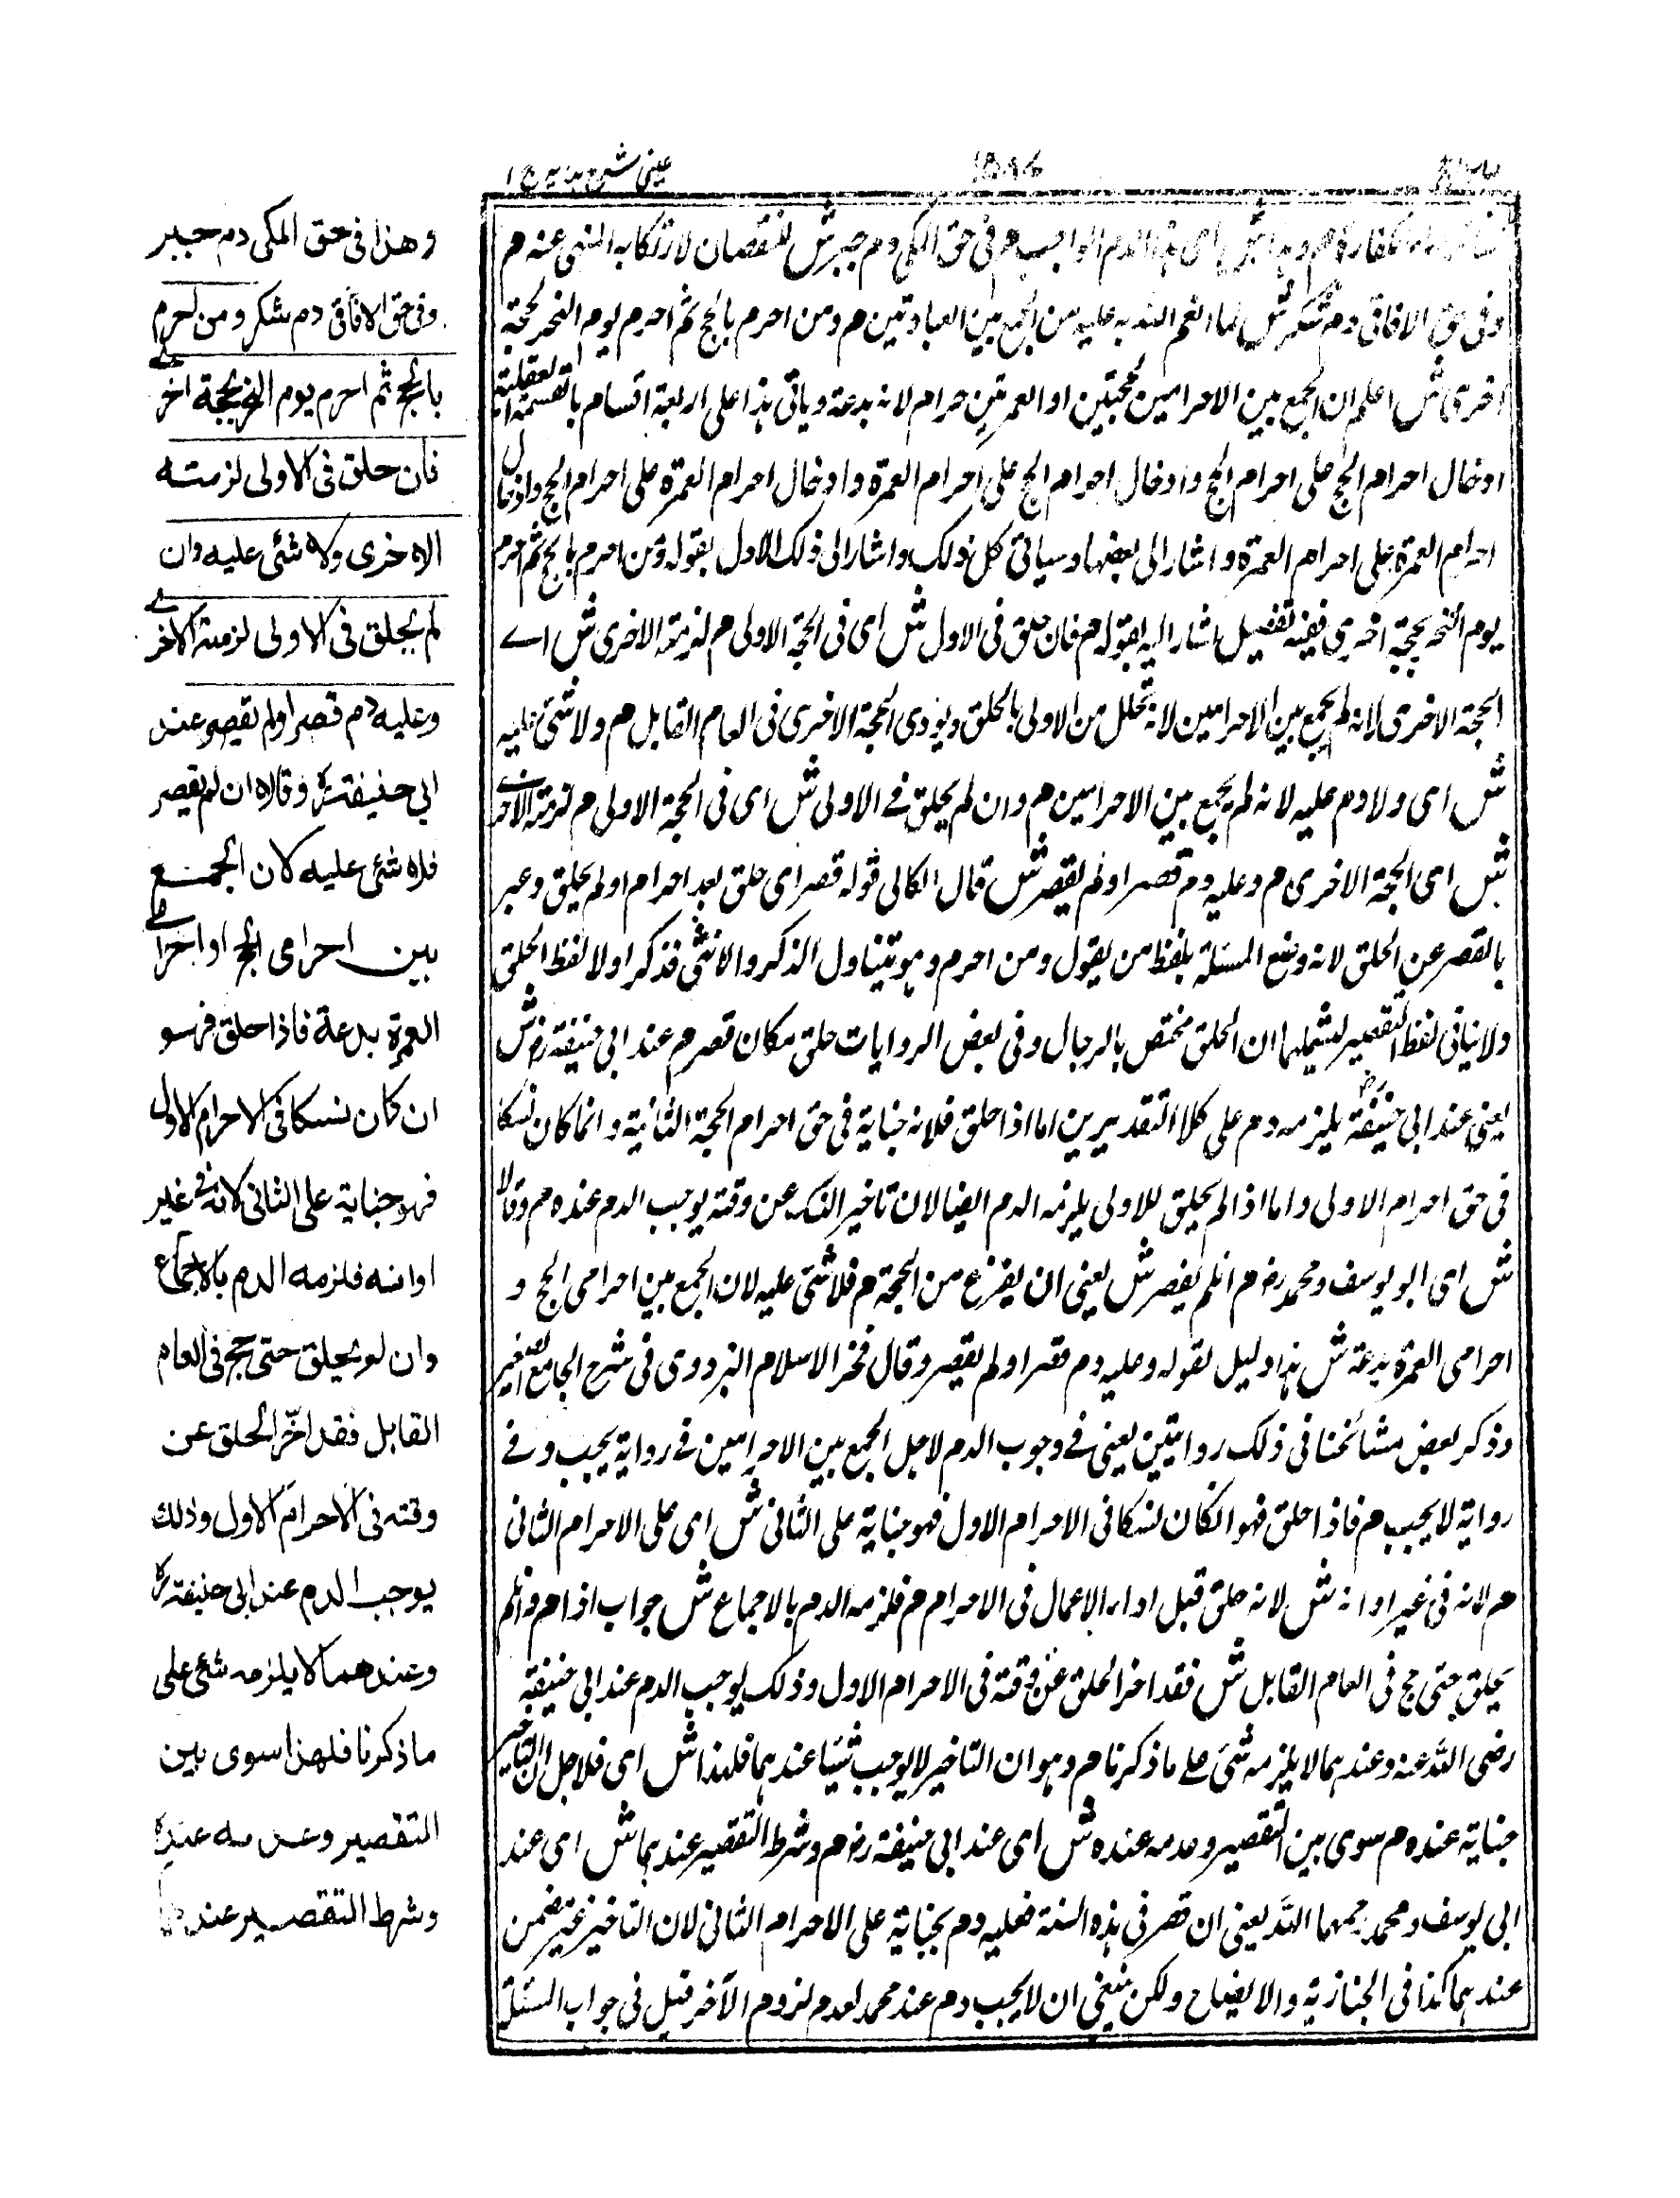 عینی شرح ہدایہ ج ١
كفارة م وهذا ش اى هذا الدم الواجب م فى حق المكى دم جبر ش للنقصان لارتكابه المنهى عنه م
وفى حق الافاقى دم شكر ش لما انعم الله به عليه من الجمع بين العبادتين م ومن احرم بالحج ثم احرم يوم النحر بحجة
اخرى ش اعلم ان الجمع بين الاحرامين بحجتين او العمرتين حرام لانه بدعة وياتى هذا على اربعة اقسام بالقسمة العقلية
ادخال احرام الحج على احرام الحج وادخال احرام الحج على احرام العمرة وادخال احرام العمرة على احرام الحج وادخال
احرام العمرة على احرام العمرة واشار الى بعضها وسياتى كل ذلك واشار الى ذلك الاول بقوله ومن احرم بالحج ثم احرم
يوم النحر بحجة اخرى ففيه تفصيل اشار اليه بقوله م فان حلق فى الاول ش اى فى الحجة الاولى م لزمته الاخرى ش اے
الحجة الاخرى لانه لم يجمع بين الاحرامين لانه تحلل من الاولى بالحلق ويودى الحجة الاخرى فى العام القابل م ولا شئ عليه
ش اى ولا دم عليه لانه لم يجمع بين الاحرامين م وان لم يحلق فے الاولى ش اى فى الحجة الاولى م لزمته الاخرے
ش اى الحجة الاخرى م وعليه دم قصر او لم يقصر ش قال الكاكى قوله قصر اى حلق بعد احرام او لم يحلق وعبر
بالقصر عن الحلق لانه وضع المسئلة بلفظ من يقول ومن احرم وهو يتناول الذكر والانثى فذكر اولا لفظ الحلق
ولانيا فى لفظ التقصير ليشملهما ان الحلق مختص بالرجال وفى بعض الروايات حلق مكان قصر م عند ابى حنيفة رض ش
يعنى عند ابى حنيفة رض يلزمه دم على كلا التقديرين اما اذا حلق فلانه جناية فى حق احرام الحجة الثانية وانما كان نسكا
فى حق احرام الاولى واما اذا لم يحلق للاولى يلزمه الدم ايضا لان تاخير النسك عن وقته يوجب الدم عنده م وقالا
ش اى ابو يوسف ومحمد رح م ان لم يقصر ش يعنى ان يفرغ من الحجة م فلا شئ عليه لان الجمع بين احرامى الحج و
احرامى العمرة بدعة ش هذا دليل لقوله وعليه دم قصر او لم يقصر وقال فخر الاسلام البزدوى فى شرح الجامع الصغير
وذكر بعض مشائخنا فى ذلك روايتين يعنى فے وجوب الدم لاجل الجمع بين الاحرامين فے رواية يجب وفے
رواية لا يجب م فاذا حلق فهو ان كان نسكا فى الاحرام الاول فهو جناية على الثانى ش اى على الاحرام الثانى
م لانه فى غير اوانه ش لانه حلق قبل اداء الاعمال فى الاحرام م فلزمه الدم بالاجماع ش جواب اذا م وان لم
يحلق حتى حج فى العام القابل ش فقد اخر الحلق عن وقته فى الاحرام الاول وذلك يوجب الدم عند ابى حنيفة
رضى الله عنه وعندهما لا يلزمه شئ على ما ذكرنا م وهو ان التاخير لا يوجب شيئا عندهما فلهذا ش اى فلاجل ان التاخير
جناية عنده م سوى بين التقصير وعدمه عنده ش اى عند ابى حنيفة رض م وشرط التقصير عندهما ش اى عند
ابى يوسف ومحمد رحمهما الله يعنى ان قصر فى هذه السنة فعليه دم بجناية على الاحرام الثانى لان التاخير غير مضمن
عندهما كذا فى الجنازية والايضاح ولكن ينبغى ان لا يجب دم عند محمد لعدم لزوم الآخر قيل فى جواب المسئلة
وهذا فى حق المكى دم جبر
وفى حق الافاقى دم شكر ومن احرم
بالحج ثم احرم يوم النحر بحجة اخرے
فان حلق فى الاولى لزمته
الاخرى ولا شئ عليه وان
لم يحلق فى الاولى لزمته الاخرے
وعليه دم قصر او لم يقصر عند
ابى حنيفة رح وقالا ان لم يقصر
فلا شئ عليه لان الجمع
بين احرامى الحج او احرامے
العمرة بدعة فاذا حلق فهو
ان كان نسكا فى الاحرام الاول
فهو جناية على الثانى لانه فى غير
اوانه فلزمه الدم بالاجماع
وان لم يحلق حتى حج فى العام
القابل فقد اخّر الحلق عن
وقته فى الاحرام الاول وذلك
يوجب الدم عند ابى حنيفة رح
وعندهما لا يلزمه شئ على
ما ذكرنا فلهذا سوى بين
التقصير وعدمه عنده
وشرط التقصير عندهما